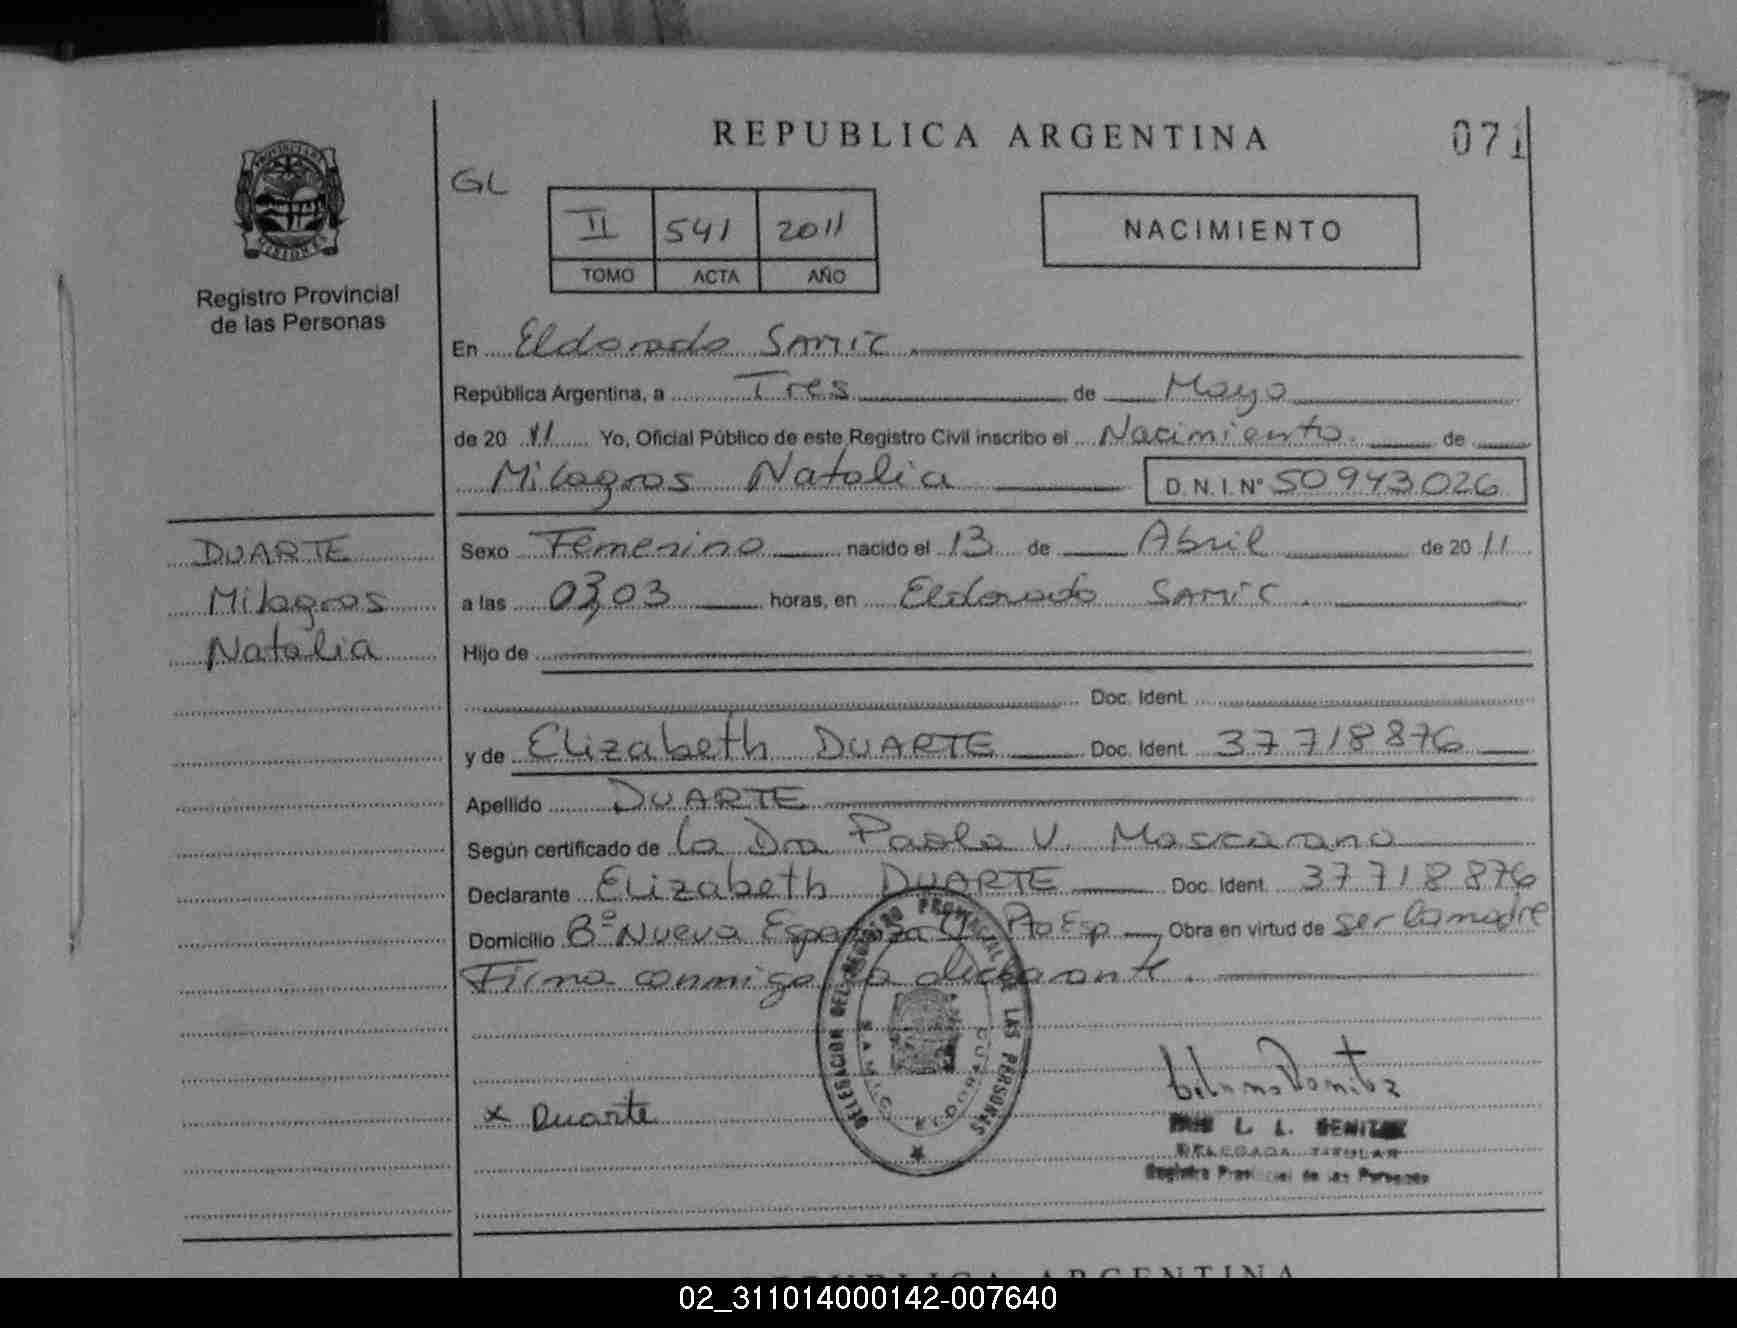 REPUBLICA ARGENTINA
071
GL
II 541 2011
TOMO ACTA AÑO
NACIMIENTO
Registro Provincial
de las Personas
En Eldorado SAMIC
República Argentina, a Tres de Mayo
de 20 11 Yo, Oficial Público de este Registro Civil inscribo el Nacimiento de
Milagros Natalia D.N.I.Nº 50943026
DUARTE
Milagros
Natalia
Sexo Femenino nacido el 13 de Abril de 20 11
a las 03,03 horas, en Eldorado SAMIC.
Hijo de
Doc. Ident.
y de Elizabeth DUARTE Doc. Ident. 37718876
Apellido DUARTE
Según certificado de la Dra Paola V. Mascarano
Declarante Elizabeth DUARTE Doc. Ident. 37718876
Domicilio Bº Nueva Esperanza Pto Esp Obra en virtud de ser la madre
Firma conmigo la declarante.
DELEGACION DEL REGISTRO PROVINCIAL DE LAS PERSONAS
SAMIC ELDORADO
x Duarte
L. L. BENITEZ
DELEGADA TITULAR
Registro Provincial de las Personas
REPUBLICA ARGENTINA
02_311014000142-007640